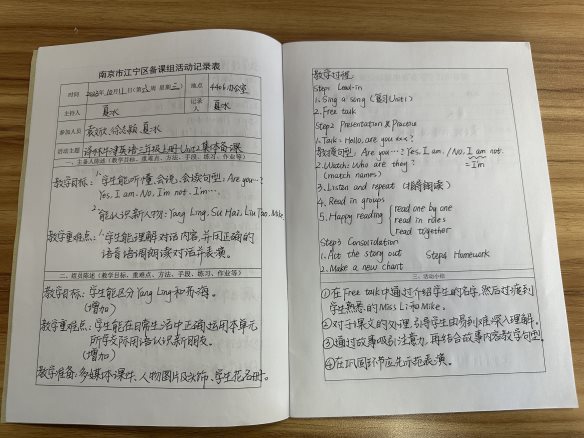 南京市江宁区备课组活动记录表
时间 2023年10月11日(第六周 星期三) 地点 440办公室
主持人 夏冰 记录人 夏冰
参加人员 袁欣、徐志颖、夏冰
活动主题 译林牛津英语三年级上册Unit2集体备课
一、主备人陈述(教学目标、重难点、方法、手段、练习、作业等)
教学目标:1.学生能听懂,会说,会读句型:Are you…?
Yes, I am. No, I'm not. I'm…
2.能认识新人物:Yang Ling, Su Hai, Liu Tao, Mike.
教学重难点:1.学生能理解对话内容,并用正确的
语音语调朗读对话并表演。
二、组员陈述(教学目标、重难点、方法、手段、练习、作业等)
教学目标:学生能区分Yang Ling和苏海。
(增加)
教学重难点:学生能在日常生活中正确运用本单元
所学交际用语认识新朋友。
(增加)
教学准备:多媒体课件、人物图片及头饰、学生花名册。
教学过程
Step1 Lead-in
1. Sing a song (复习Unit1)
2. Free talk
Step2 Presentation & Practice
1. Talk: Hello, are you xxx?
教授句型:Are you…? Yes, I am. /No, I'm not.
2. Watch: Who are they? I am = I'm
(match names)
3. Listen and repeat (指导朗读)
4. Read in groups
5. Happy reading { read one by one
read in roles
read together
Step3 Consolidation
1. Act the story out Step4 Homework
2. Make a new chart
三、活动小结
①在Free talk中通过介绍学生的名字,然后过渡到
学生熟悉的Miss Li和Mike。
②对于课文的处理,引导学生由易到难,深入理解。
③通过故事吸引注意力,再结合故事内容教学句型。
④在巩固环节应先示范表演。